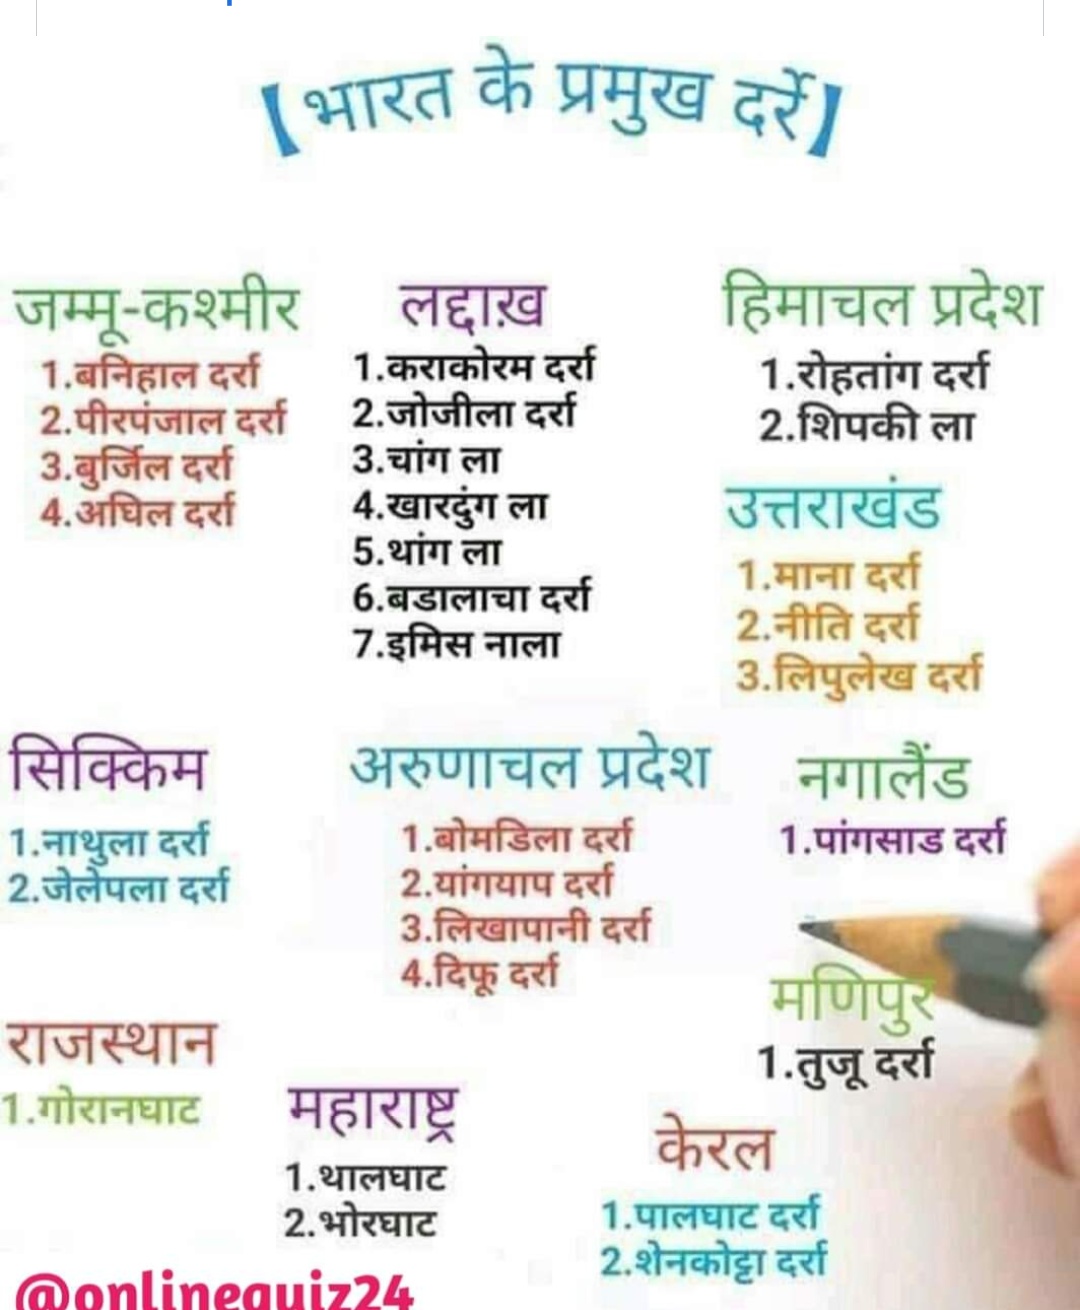 【भारत के प्रमुख दर्रे】
जम्मू-कश्मीर
1.बनिहाल दर्रा
2.पीरपंजाल दर्रा
3.बुर्जिल दर्रा
4.अघिल दर्रा
लद्दाख़
1.कराकोरम दर्रा
2.जोजीला दर्रा
3.चांग ला
4.खारदुंग ला
5.थांग ला
6.बडालाचा दर्रा
7.इमिस नाला
हिमाचल प्रदेश
1.रोहतांग दर्रा
2.शिपकी ला
उत्तराखंड
1.माना दर्रा
2.नीति दर्रा
3.लिपुलेख दर्रा
सिक्किम
1.नाथुला दर्रा
2.जेलेपला दर्रा
अरुणाचल प्रदेश
1.बोमडिला दर्रा
2.यांगयाप दर्रा
3.लिखापानी दर्रा
4.दिफू दर्रा
नगालैंड
1.पांगसाड दर्रा
मणिपुर
1.तुजू दर्रा
राजस्थान
1.गोरानघाट
महाराष्ट्र
1.थालघाट
2.भोरघाट
केरल
1.पालघाट दर्रा
2.शेनकोट्टा दर्रा
@onlinequiz24